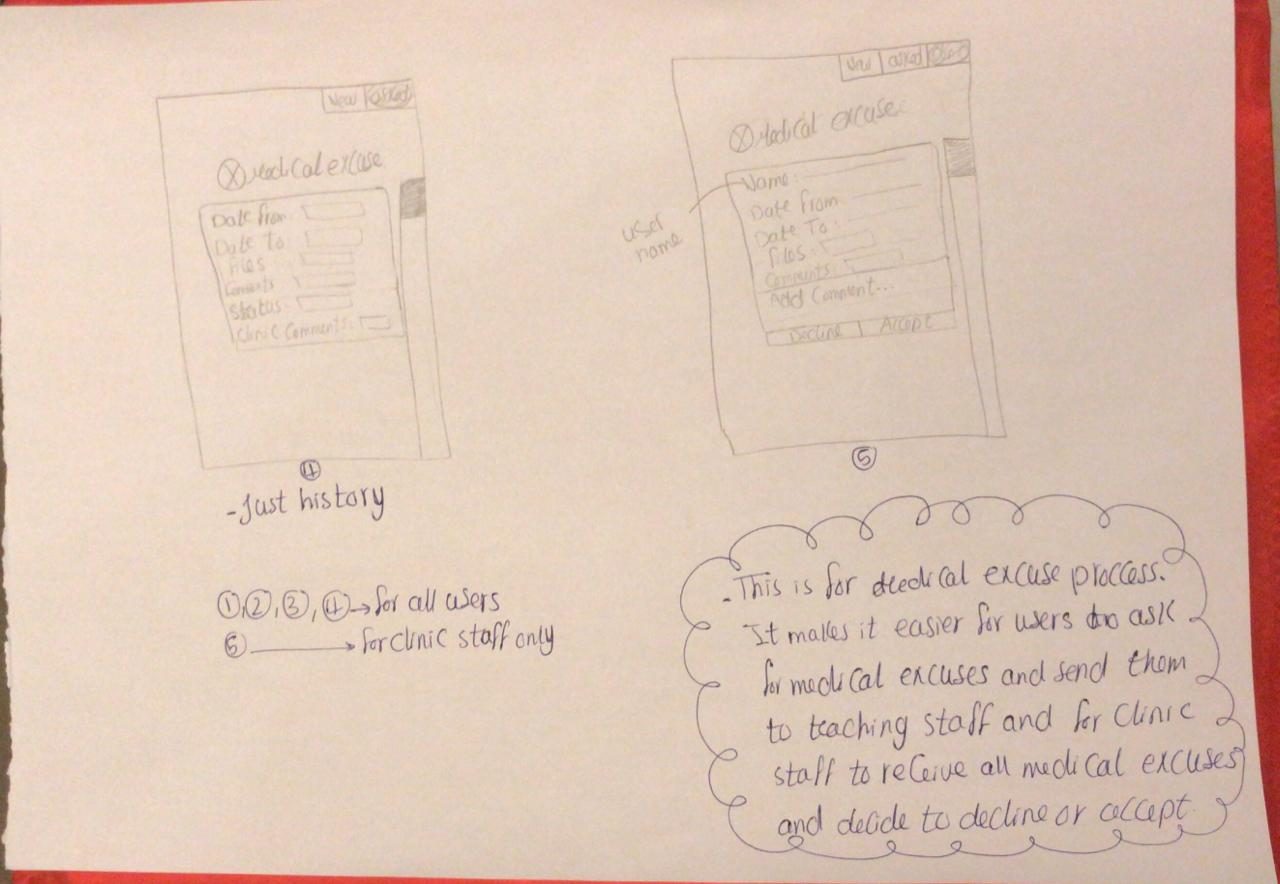 New asked
Medical excuse
Date from:
Date To:
Files
Comments
Status:
Clinic Comments:
4
-Just history
New asked
Medical excuse
Name:
user
name
Date from
Date To:
Files:
Comments:
Add Comment...
Decline | Accept
5
1, 2, 3, 4 → for all users
5 → for clinic staff only
- This is for Medical excuse proccess.
It makes it easier for users to ask
for medical excuses and send them
to teaching staff and for Clinic
staff to receive all medical excuses
and decide to decline or accept.